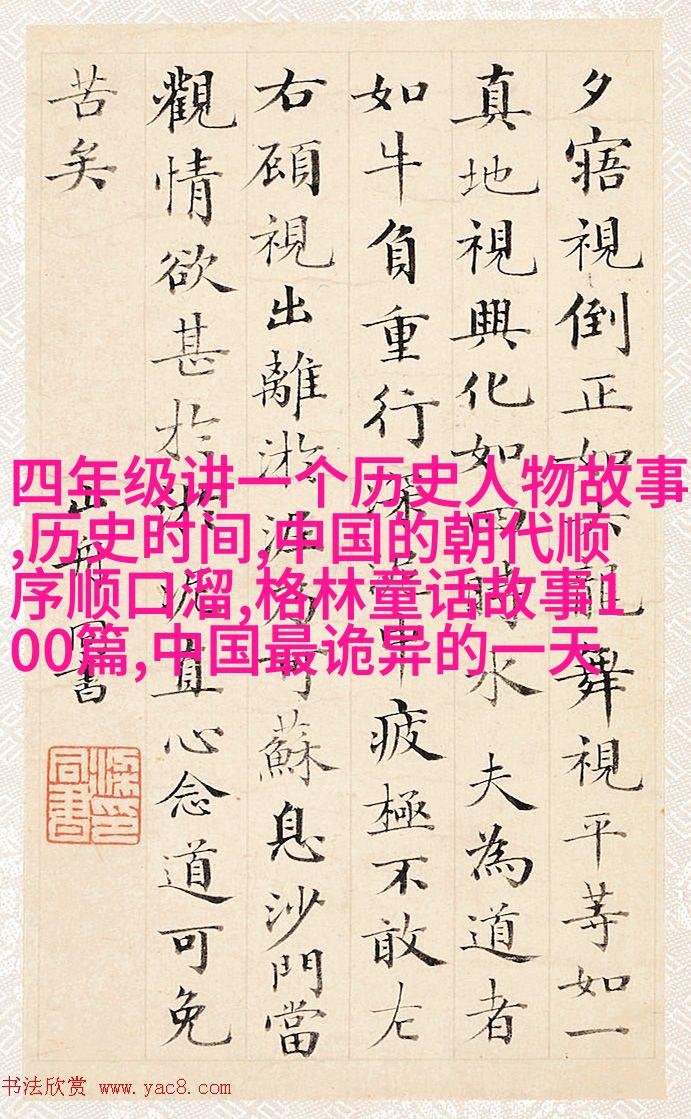 夕寤視倒正如六龍舞視平等如一
真地視興化如四時木 夫為道者
如牛負重行深泥中疲極不敢左
右顧視出離淤泥乃可蘇息沙門當
觀情欲甚於淤泥直心念道可免
苦矣
山舟同書
四年级讲一个历史人物故事
,历史时间,中国的朝代顺
序顺口溜,格林童话故事1
00篇,中国最诡异的一天
书法欣赏 www.yac8.com